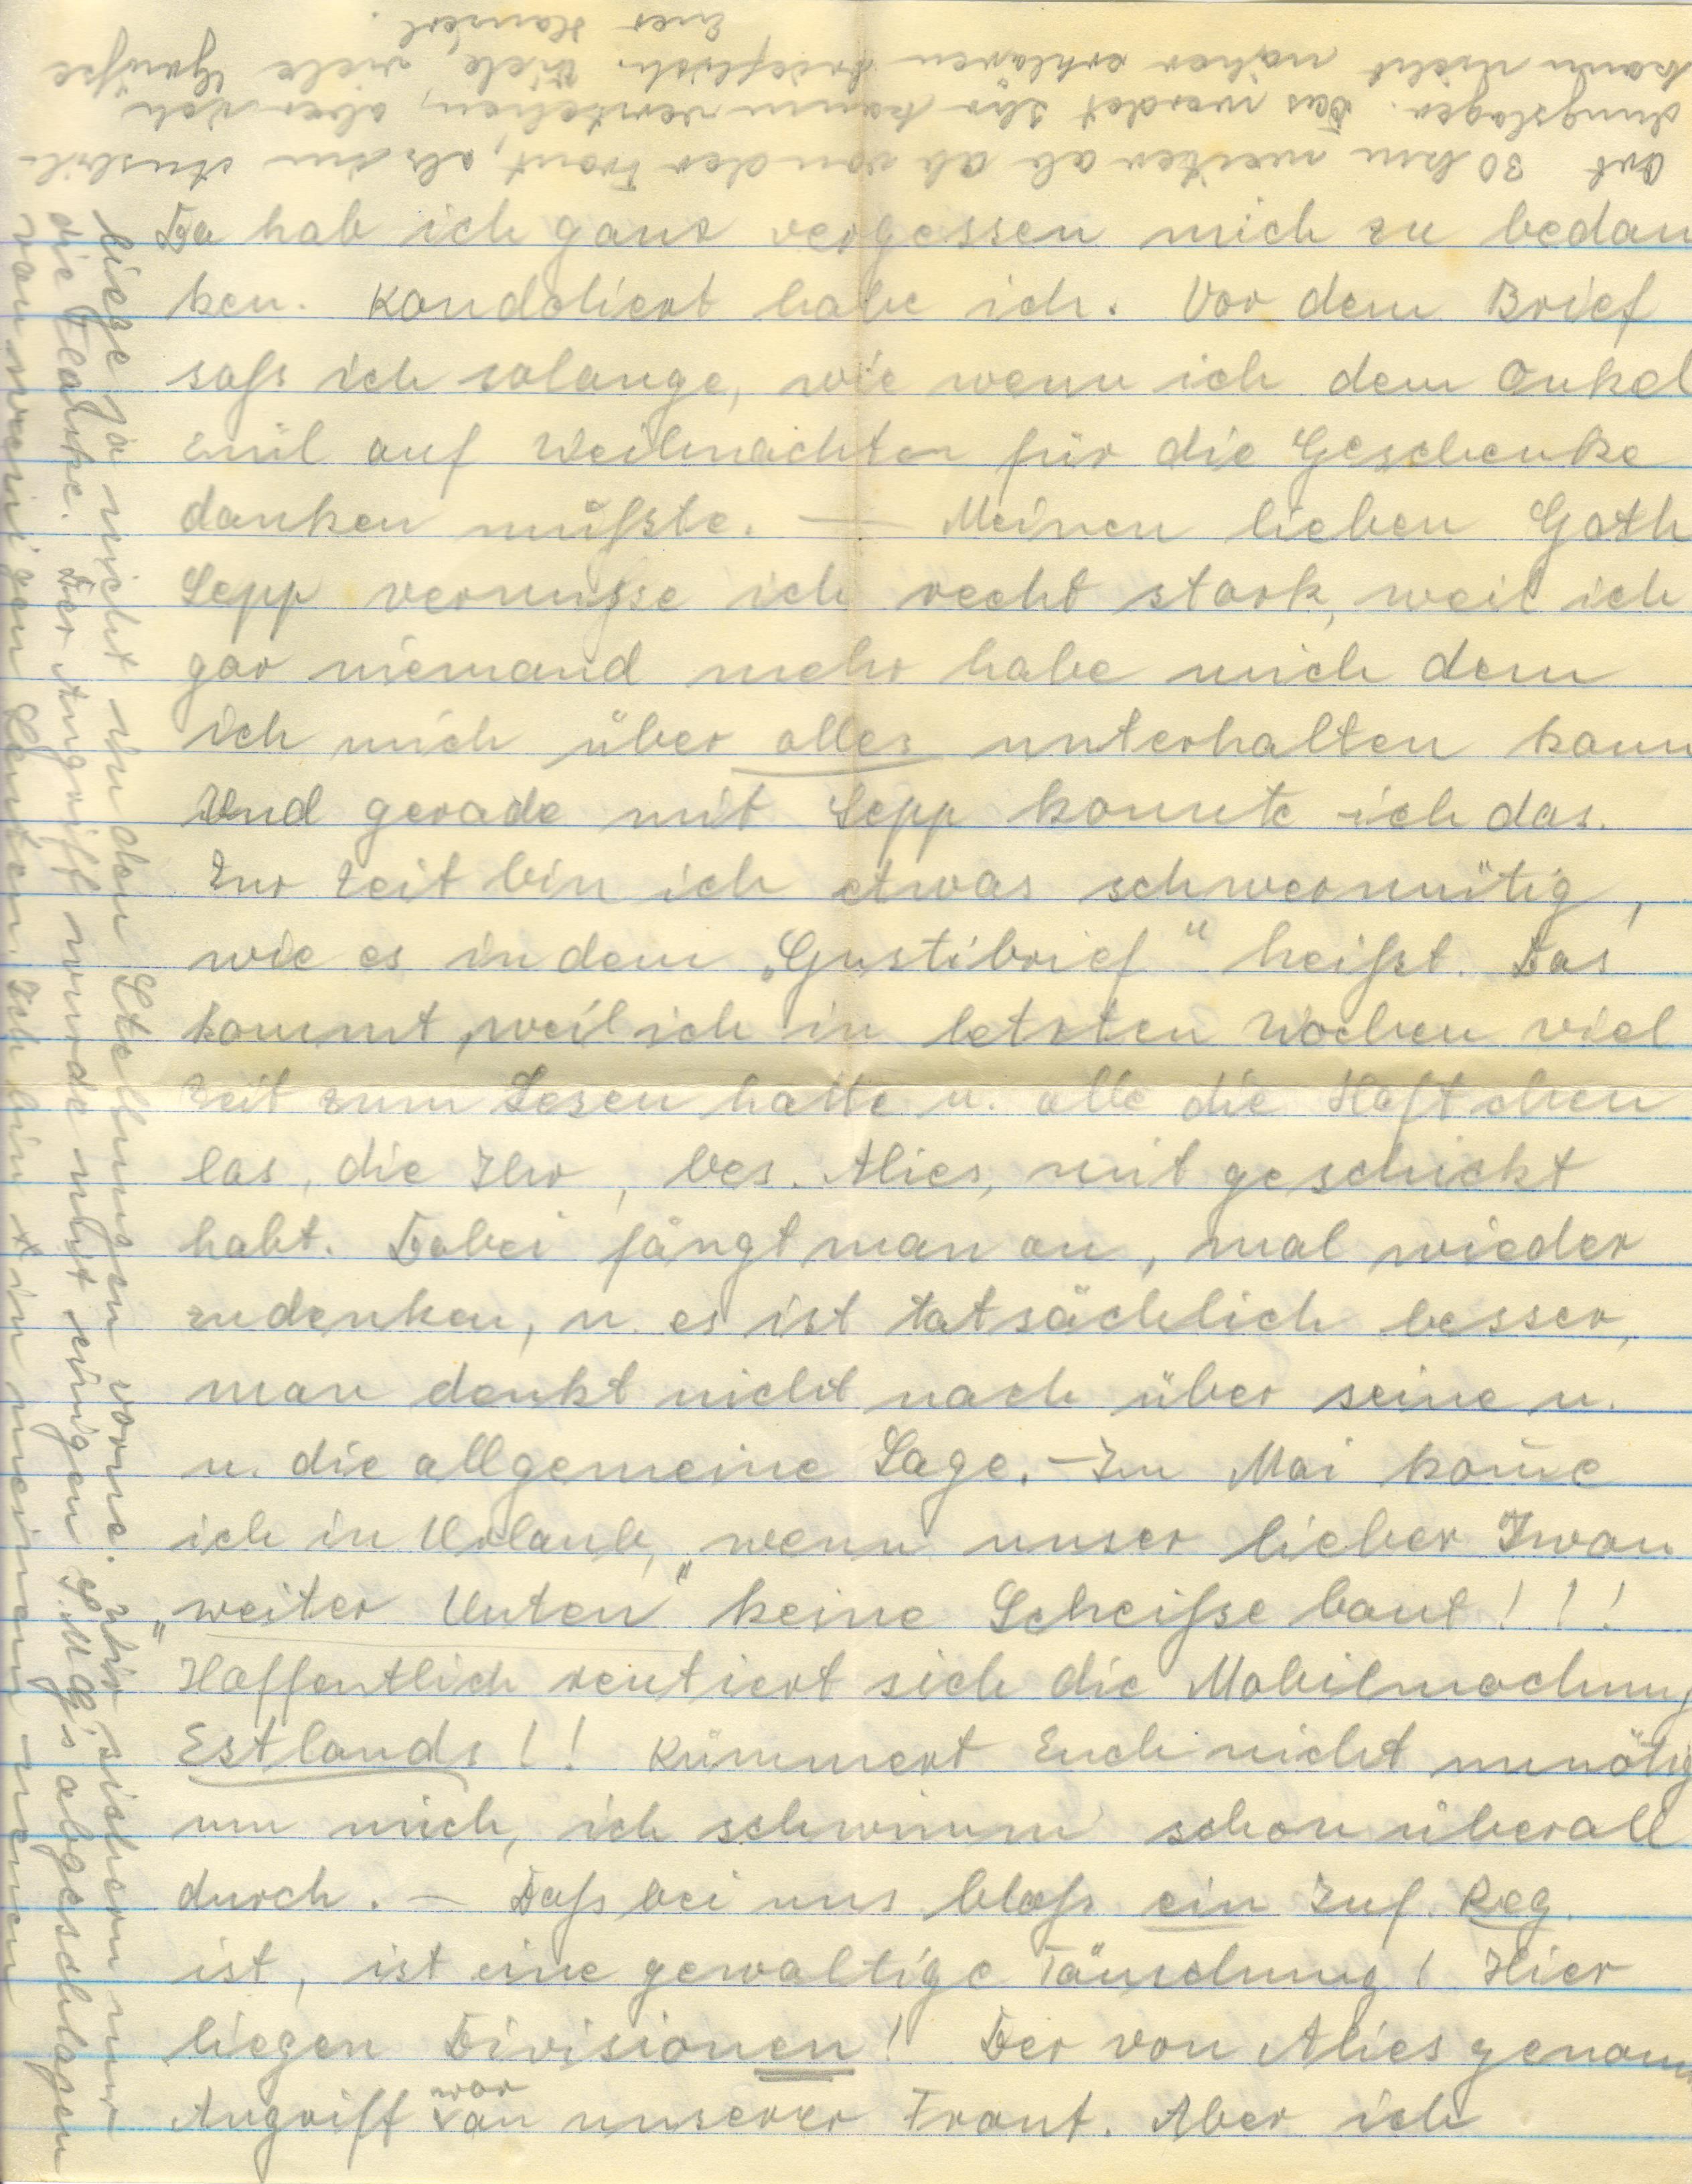 Da hab ich ganz vergessen mich zu bedan
ken. Kondoliert habe ich. Vor dem Brief
sass ich solange, wie wenn ich dem Onkel
Emil auf Weihnachten für die Geschenke
danken müsste. — Meinen lieben Goth
Sepp vermisse ich recht stark, weil ich
gar niemand mehr habe mich dem
ich mich über alles unterhalten kann
Und gerade mit Sepp konnte ich das.
Zur Zeit bin ich etwas schwermütig,
wie es in dem „Gustibrief" heisst. Das
kommt, weil ich in letzten Wochen viel
Zeit zum Lesen hatte u. alle die Heftchen
las, die Ihr, bes. Alies, mit geschickt
habt. Dabei fängt man an, mal wieder
zudenken, u. es ist tatsächlich besser,
man denkt nicht nach über seine u.
u. die allgemeine Lage. — Im Mai kom̄e
ich in Urlaub, wenn unser lieber Iwan
„weiter Unten" keine Scheisse baut!!!
Hoffentlich rentiert sich die Mobilmachung
Estlands!! Kümmert Euch nicht unnötig
um mich, ich schwimm schon überall
durch. — Dass bei uns bloss ein Inf. Reg.
ist, ist eine gewaltige Täuschung! Hier
liegen Divisionen! Der von Alies genann
Angriff war von unserer Front. Aber ich
liege ja nicht in den Stellungen vorne. Wir sichern nur
die Flanke. Der Angriff wurde mit einigen s.M.G's abgeschlagen
von wenigen Leuten. Ich bin x in meinem neuen
Ort 30 km weiter ab ab von der Front, als im Ausbil-
dungslager. Das werdet Ihr kaum verstehen, aber ich
kann nicht näher erklären brieflich. Viele, viele Grüsse
Euer Hanserl.